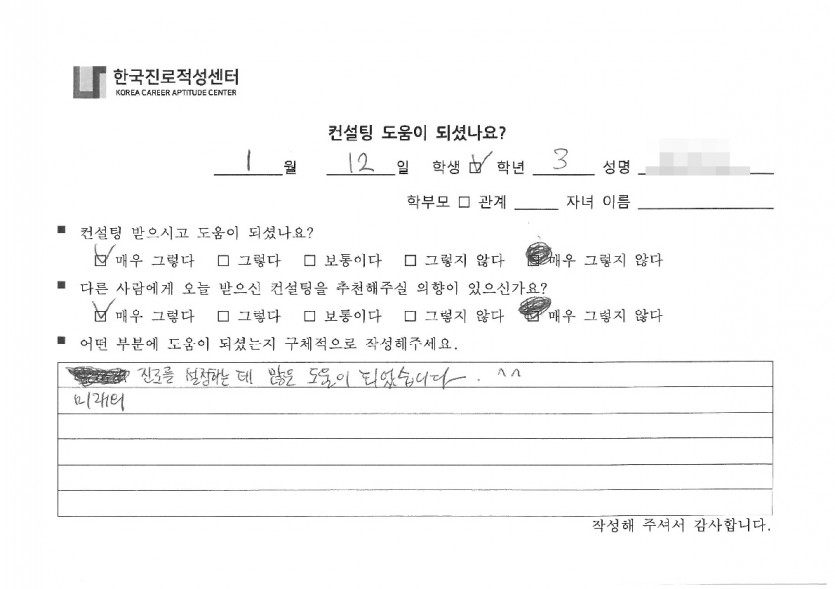 한국진로적성센터
KOREA CAREER APTITUDE CENTER
컨설팅 도움이 되셨나요?
1 월 12 일 학생 ☑ 학년 3 성명
학부모 □ 관계 자녀 이름
■ 컨설팅 받으시고 도움이 되셨나요?
☑ 매우 그렇다 □ 그렇다 □ 보통이다 □ 그렇지 않다 ■ 매우 그렇지 않다
■ 다른 사람에게 오늘 받으신 컨설팅을 추천해주실 의향이 있으신가요?
☑ 매우 그렇다 □ 그렇다 □ 보통이다 □ 그렇지 않다 ■ 매우 그렇지 않다
■ 어떤 부분에 도움이 되셨는지 구체적으로 작성해주세요.
진로를 설정하는 데 많은 도움이 되었습니다. ^^
미래의
작성해 주셔서 감사합니다.